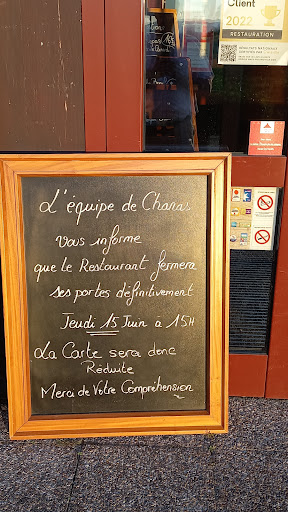 Client
2022
RESTAURATION
L'équipe de Chanas
vous informe
que le Restaurant fermera
ses portes définitivement
Jeudi 15 Juin à 15H
La Carte sera donc
Réduite
Merci de Votre Compréhension